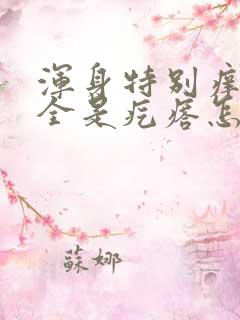 渾身特別癢
全是疙瘩怎
蘇娜